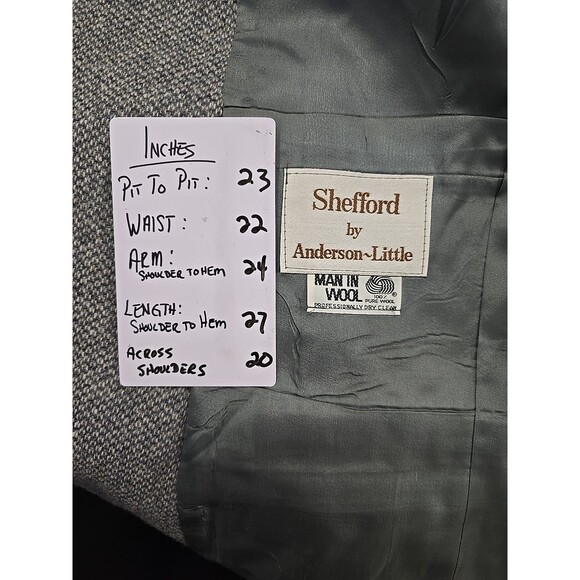 INCHES
PIT TO PIT: 23
WAIST: 22
ARM: 24
SHOULDER TO HEM
LENGTH: 27
SHOULDER TO HEM
ACROSS 20
SHOULDERS
Shefford
by
Anderson~Little
MAN IN
WOOL
100%
PURE WOOL
®
PROFESSIONALLY DRY CLEAN